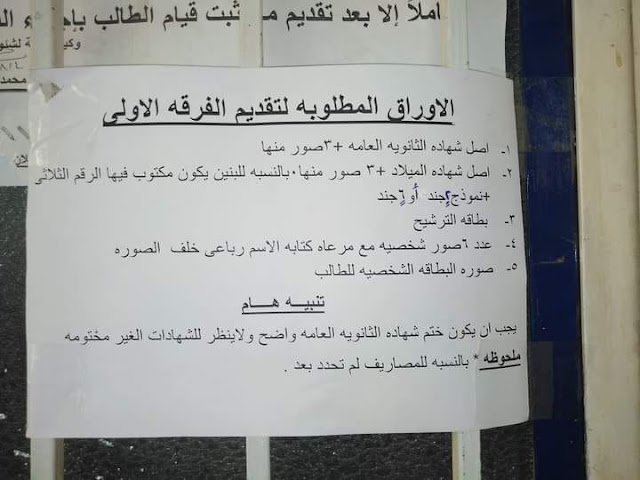 املاً إلا بعد تقديم ما يثبت قيام الطالب
محمد
الاوراق المطلوبه لتقديم الفرقه الاولى
١- اصل شهاده الثانويه العامه +٣صور منها
٢- اصل شهاده الميلاد +٣ صور منها.بالنسبه للبنين يكون مكتوب فيها الرقم الثلاثى
+نموذج٢جند أو٦جند
٣- بطاقه الترشيح
٤- عدد ٦صور شخصيه مع مرعاه كتابه الاسم رباعى خلف الصوره
٥- صوره البطاقه الشخصيه للطالب
تنبيه هام
يجب ان يكون ختم شهاده الثانويه العامه واضح ولاينظر للشهادات الغير مختومه
ملحوظه * بالنسبه للمصاريف لم تحدد بعد .